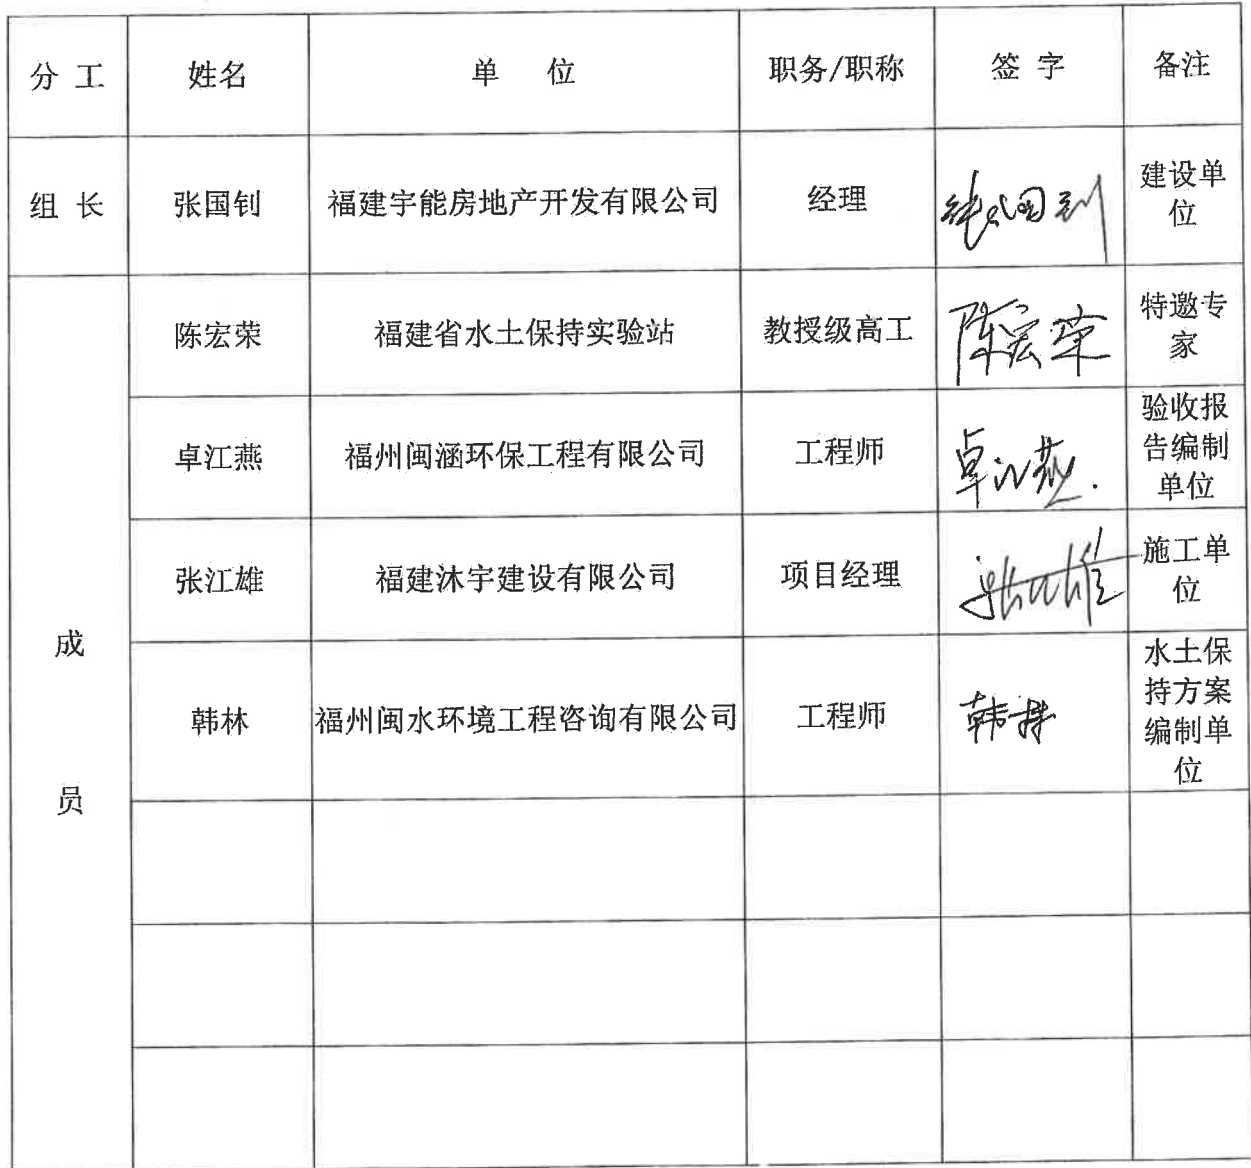 分 工 姓名 单 位 职务/职称 签 字 备注
组 长 张国钊 福建宇能房地产开发有限公司 经理 张国钊 建设单
位
陈宏荣 福建省水土保持实验站 教授级高工 陈宏荣 特邀专
家
卓江燕 福州闽涵环保工程有限公司 工程师 卓江燕 验收报
告编制
单位
张江雄 福建沐宇建设有限公司 项目经理 张江雄 施工单
位
成
员
韩林 福州闽水环境工程咨询有限公司 工程师 韩林 水土保
持方案
编制单
位